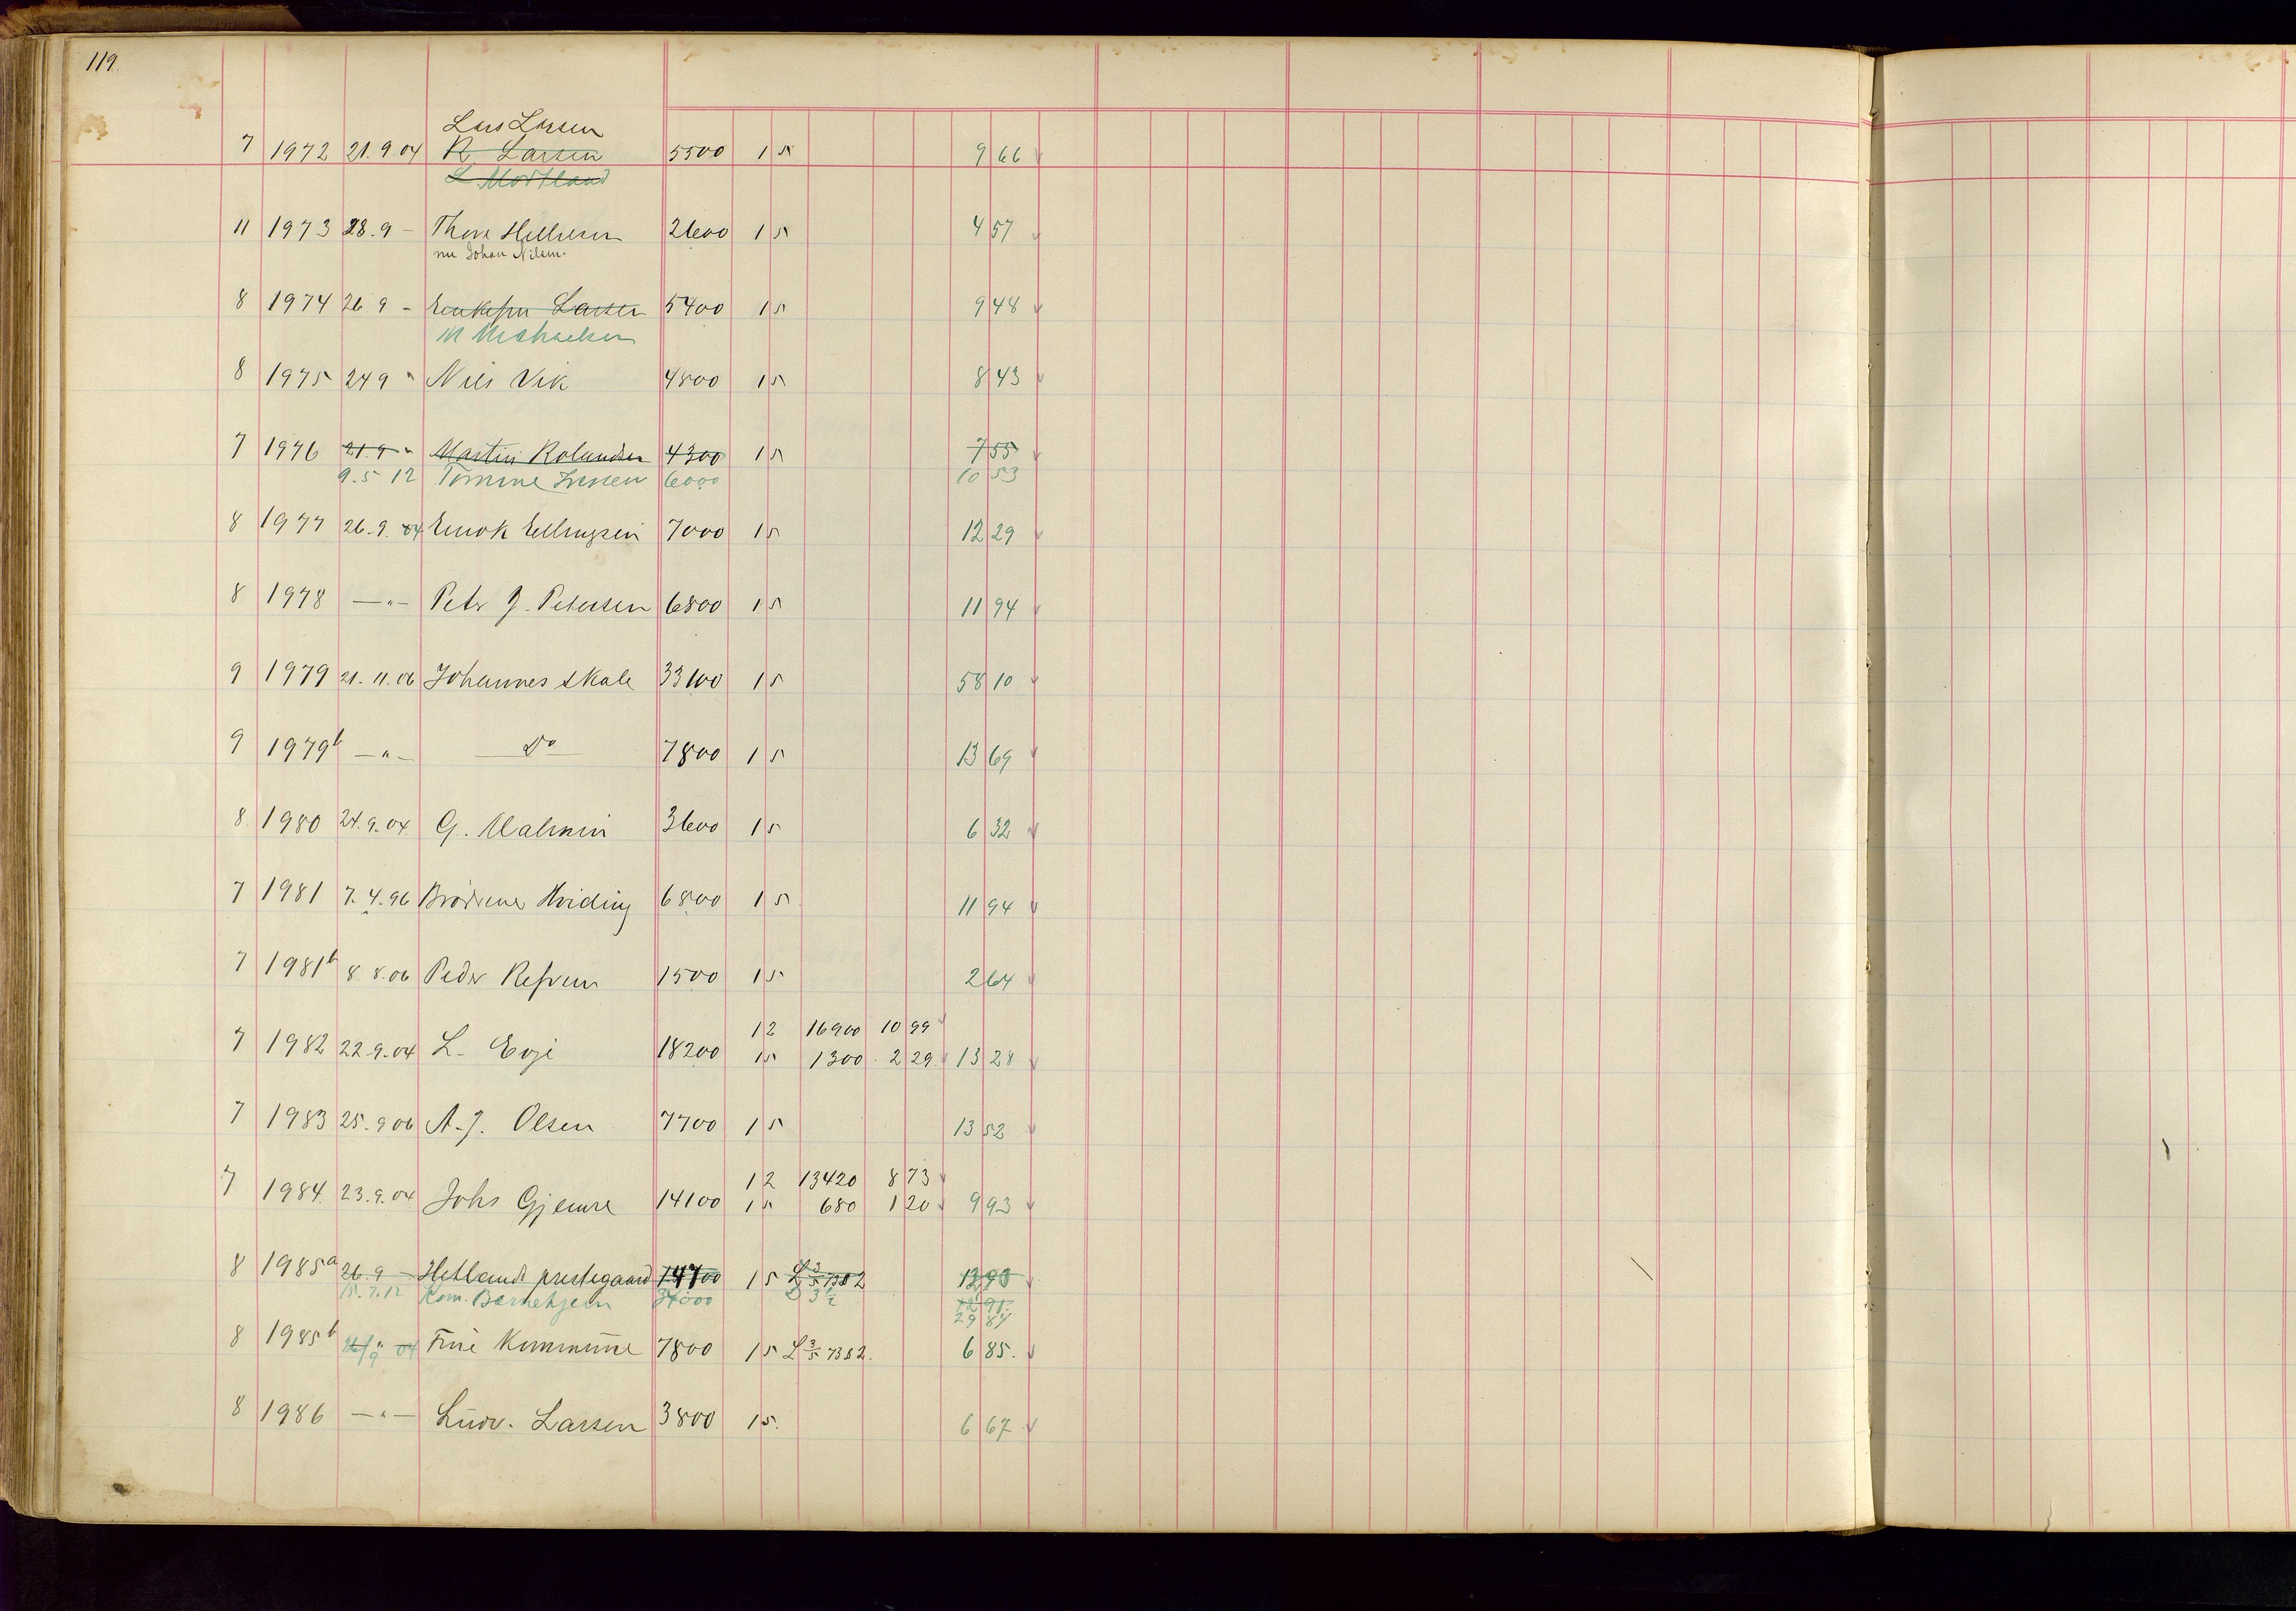 119.
Lars Larsen
7 1972 21.9.04 R. Larsen 5500 1 5 9 66
L. Mortland
11 1973 28.9 - Thore Hellesen 2600 1 5 4 57
nu Johan Nilsen.
8 1974 26.9 - Enkefru Larsen 5400 1 5 9 48
M Michaelsen
8 1975 24 9 " Nils Vik 4800 1 5 8 43
7 1976 21.9 " Martin Rolandsen 4300 1 5 7 55
9.5 12 Tomine Iversen 6000 10 53
8 1977 26.9. 04 Enok Ellingsen 7000 1 5 12 29
8 1978 —"— Petr J. Petersen 6800 1 5 11 94
9 1979 21.11.06 Johannes Skale 33100 1 5 58 10
9 1979b —"— Do 7800 1 5 13 69
8. 1980 24.9.04. G. Malmin 3600 1 5 6 32
7 1981 7.4.96 Brødrene Hviding 6800 1 5 11 94
7 1981b 8.8.06 Peder Refvem 1500 1 5 2 64
1 2 16900 10 99
7 1982 22.9.04 L. Evje 18200 1 5 1300 2 29 13 28
7 1983 25.9 06 A. J. Olsen 7700 1 5 13 52
1 2 13420 8 73
7 1984. 23.9.04 Johs Gjemre 14100 1 5 680 1 20 9 93
8 1985a 26.9 - Hetlands prestegaard 14700 1 5 L 3/5 1382 12 90
15.7.12 Kom. Barnehjem 34000 3 1/2 12 91
29 84
8 1985b 26/9 " 04 Frue Kommune 7800 1 5 L 3/5 7382. 6 85.
8 1986 —"— Ludv. Larsen 3800 1 5. 6 67